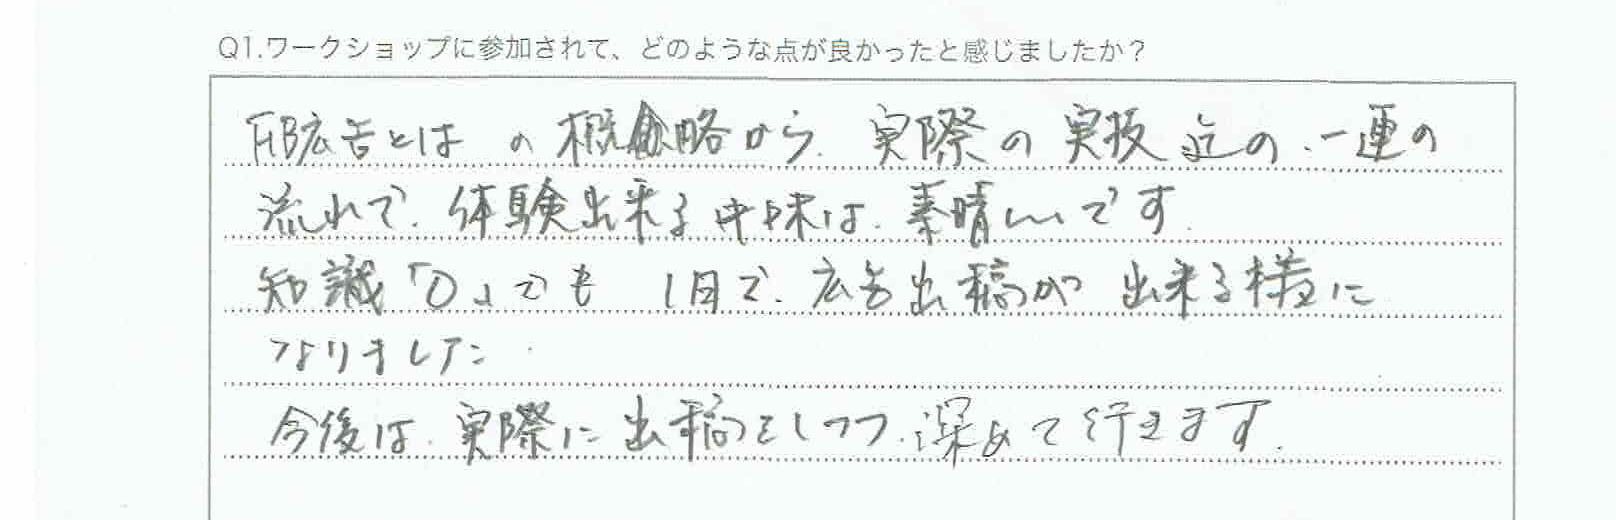 Q1.ワークショップに参加されて、どのような点が良かったと感じましたか？
FB広告とは の概略から、実際の実技迄の、一連の
流れで、体験出来る中味は、素晴しいです。
知識「0」でも 1日で、広告出稿が出来る様に
なりました。
今後は、実際に出稿をしつつ、深めて行きます。